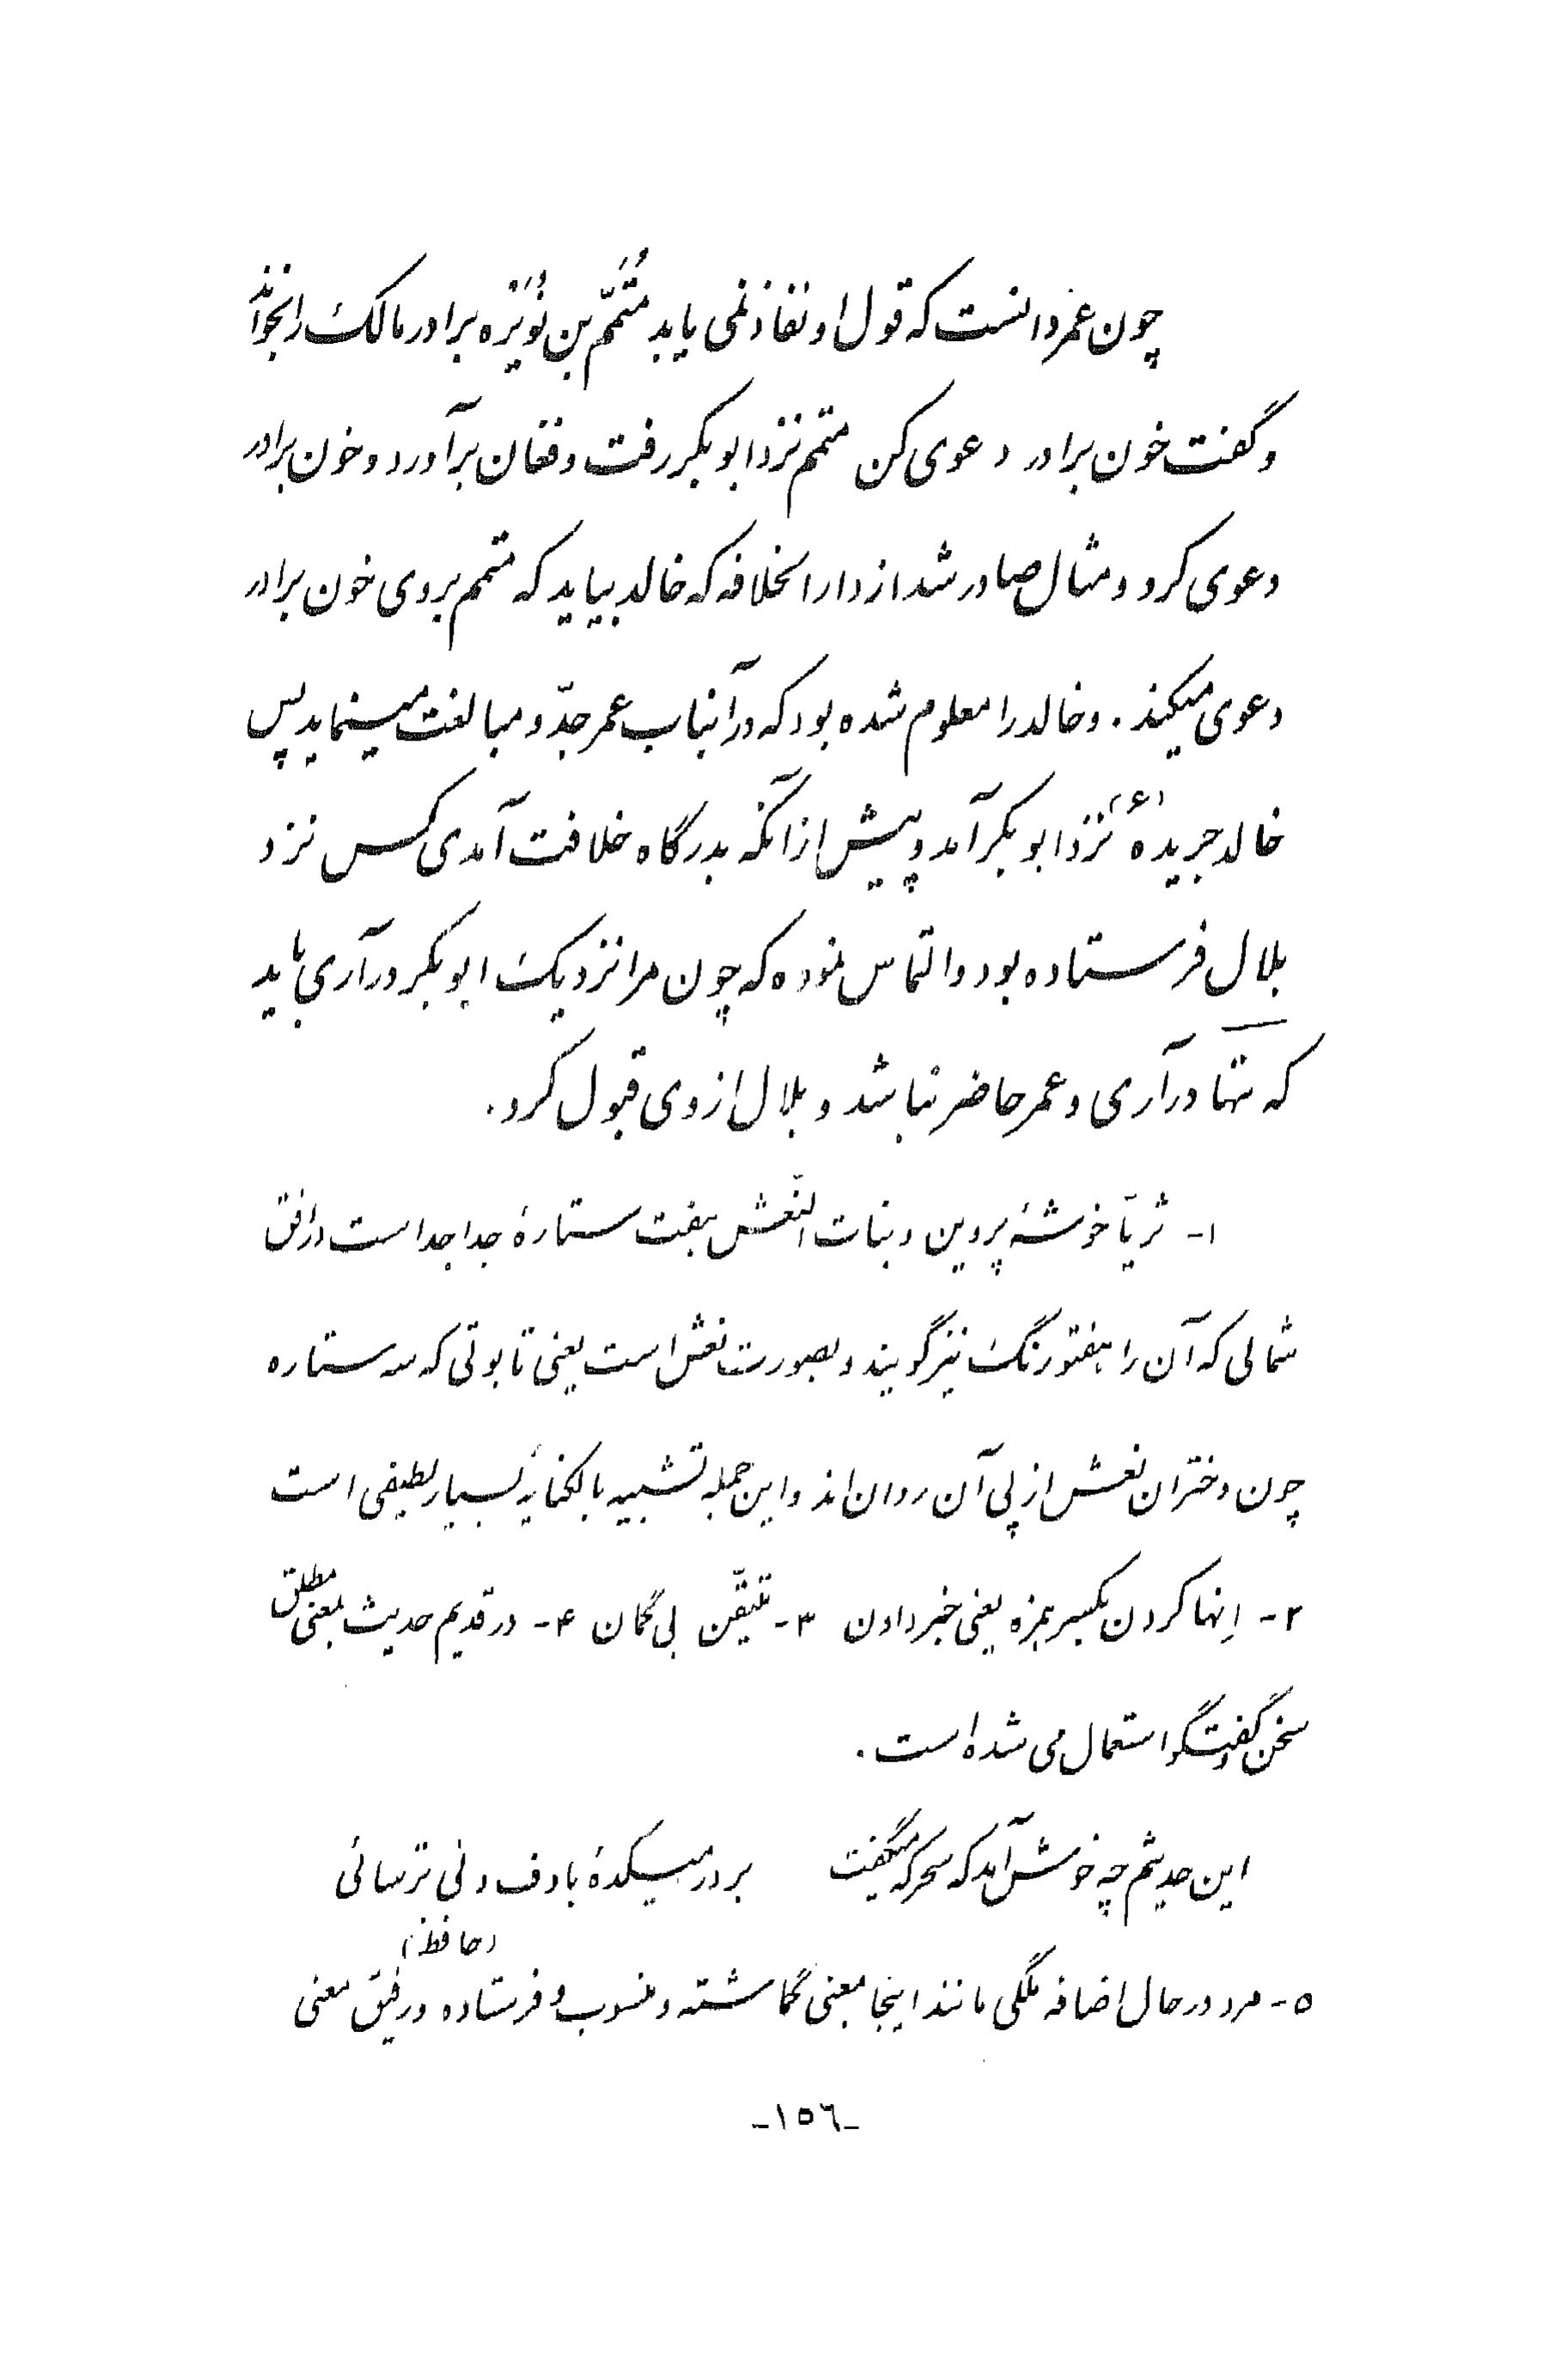 چون عمر دانست که قول او نفاذ نمی یابد مُتَمّم بن نُوَیْرَه برادر مالک را بخواند
و گفت خون برادر دعوی کن متمم نزد ابوبکر رفت و فغان برآورد و خون برادر
دعوی کرد و مثال صادر شد از دارالخلافه که خالد بیاید که متمم بروی خون برادر
دعوی میکند . و خالد را معلوم شده بود که در آنباب عمر جدّ و مبالغت مینماید پس
خالد جریده (۶) نزد ابوبکر آمد و پیش از آنکه بدرگاه خلافت آمدی کس نزد
بلال فرستاده بود و التماس نموده که چون مرا نزدیک ابوبکر درآری باید
که تنها درآری و عمر حاضر نباشد و بلال از وی قبول کرد .
۱- ثریّا خوشهٔ پروین و بنات النّعش هفت ستارهٔ جدا جدا است در افق
شمالی که آن را هفتورنگ نیز گویند و بصورت نعش است یعنی تابوتی که سه ستاره
چون دختران نعش از پی آن روان اند و این جمله تشبیه بالکنایهٔ بسیار لطیفی است
۲- اِنها کردن بکسر همزه یعنی خبر دادن ۳- تیقّن بی گمان ۴- در قدیم حدیث بمعنی مطلق
سخن و گفتگو استعمال می شده است .
این حدیثم چه خوش آمد که سحرگه میگفت بر در میکدهٔ با دف و نی ترسائی
(حافظ)
۵- مرد در حال اضافه ملکی مانند اینجا بمعنی گماشته و منسوب و فرستاده و رفیق معنی
-۱۵٦-